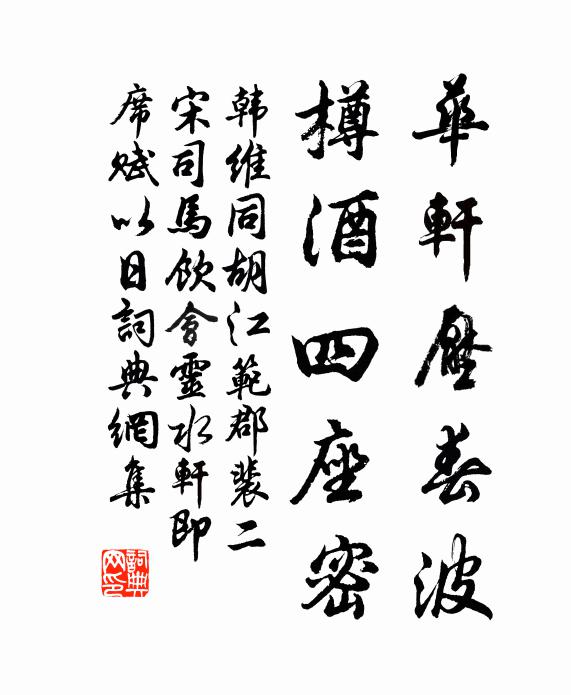 華軒壓春波
樽酒四座密
韩維同胡江範郡裴二
宋司馬飲會靈水軒即
席賦以日詞典網集
詞典
网印